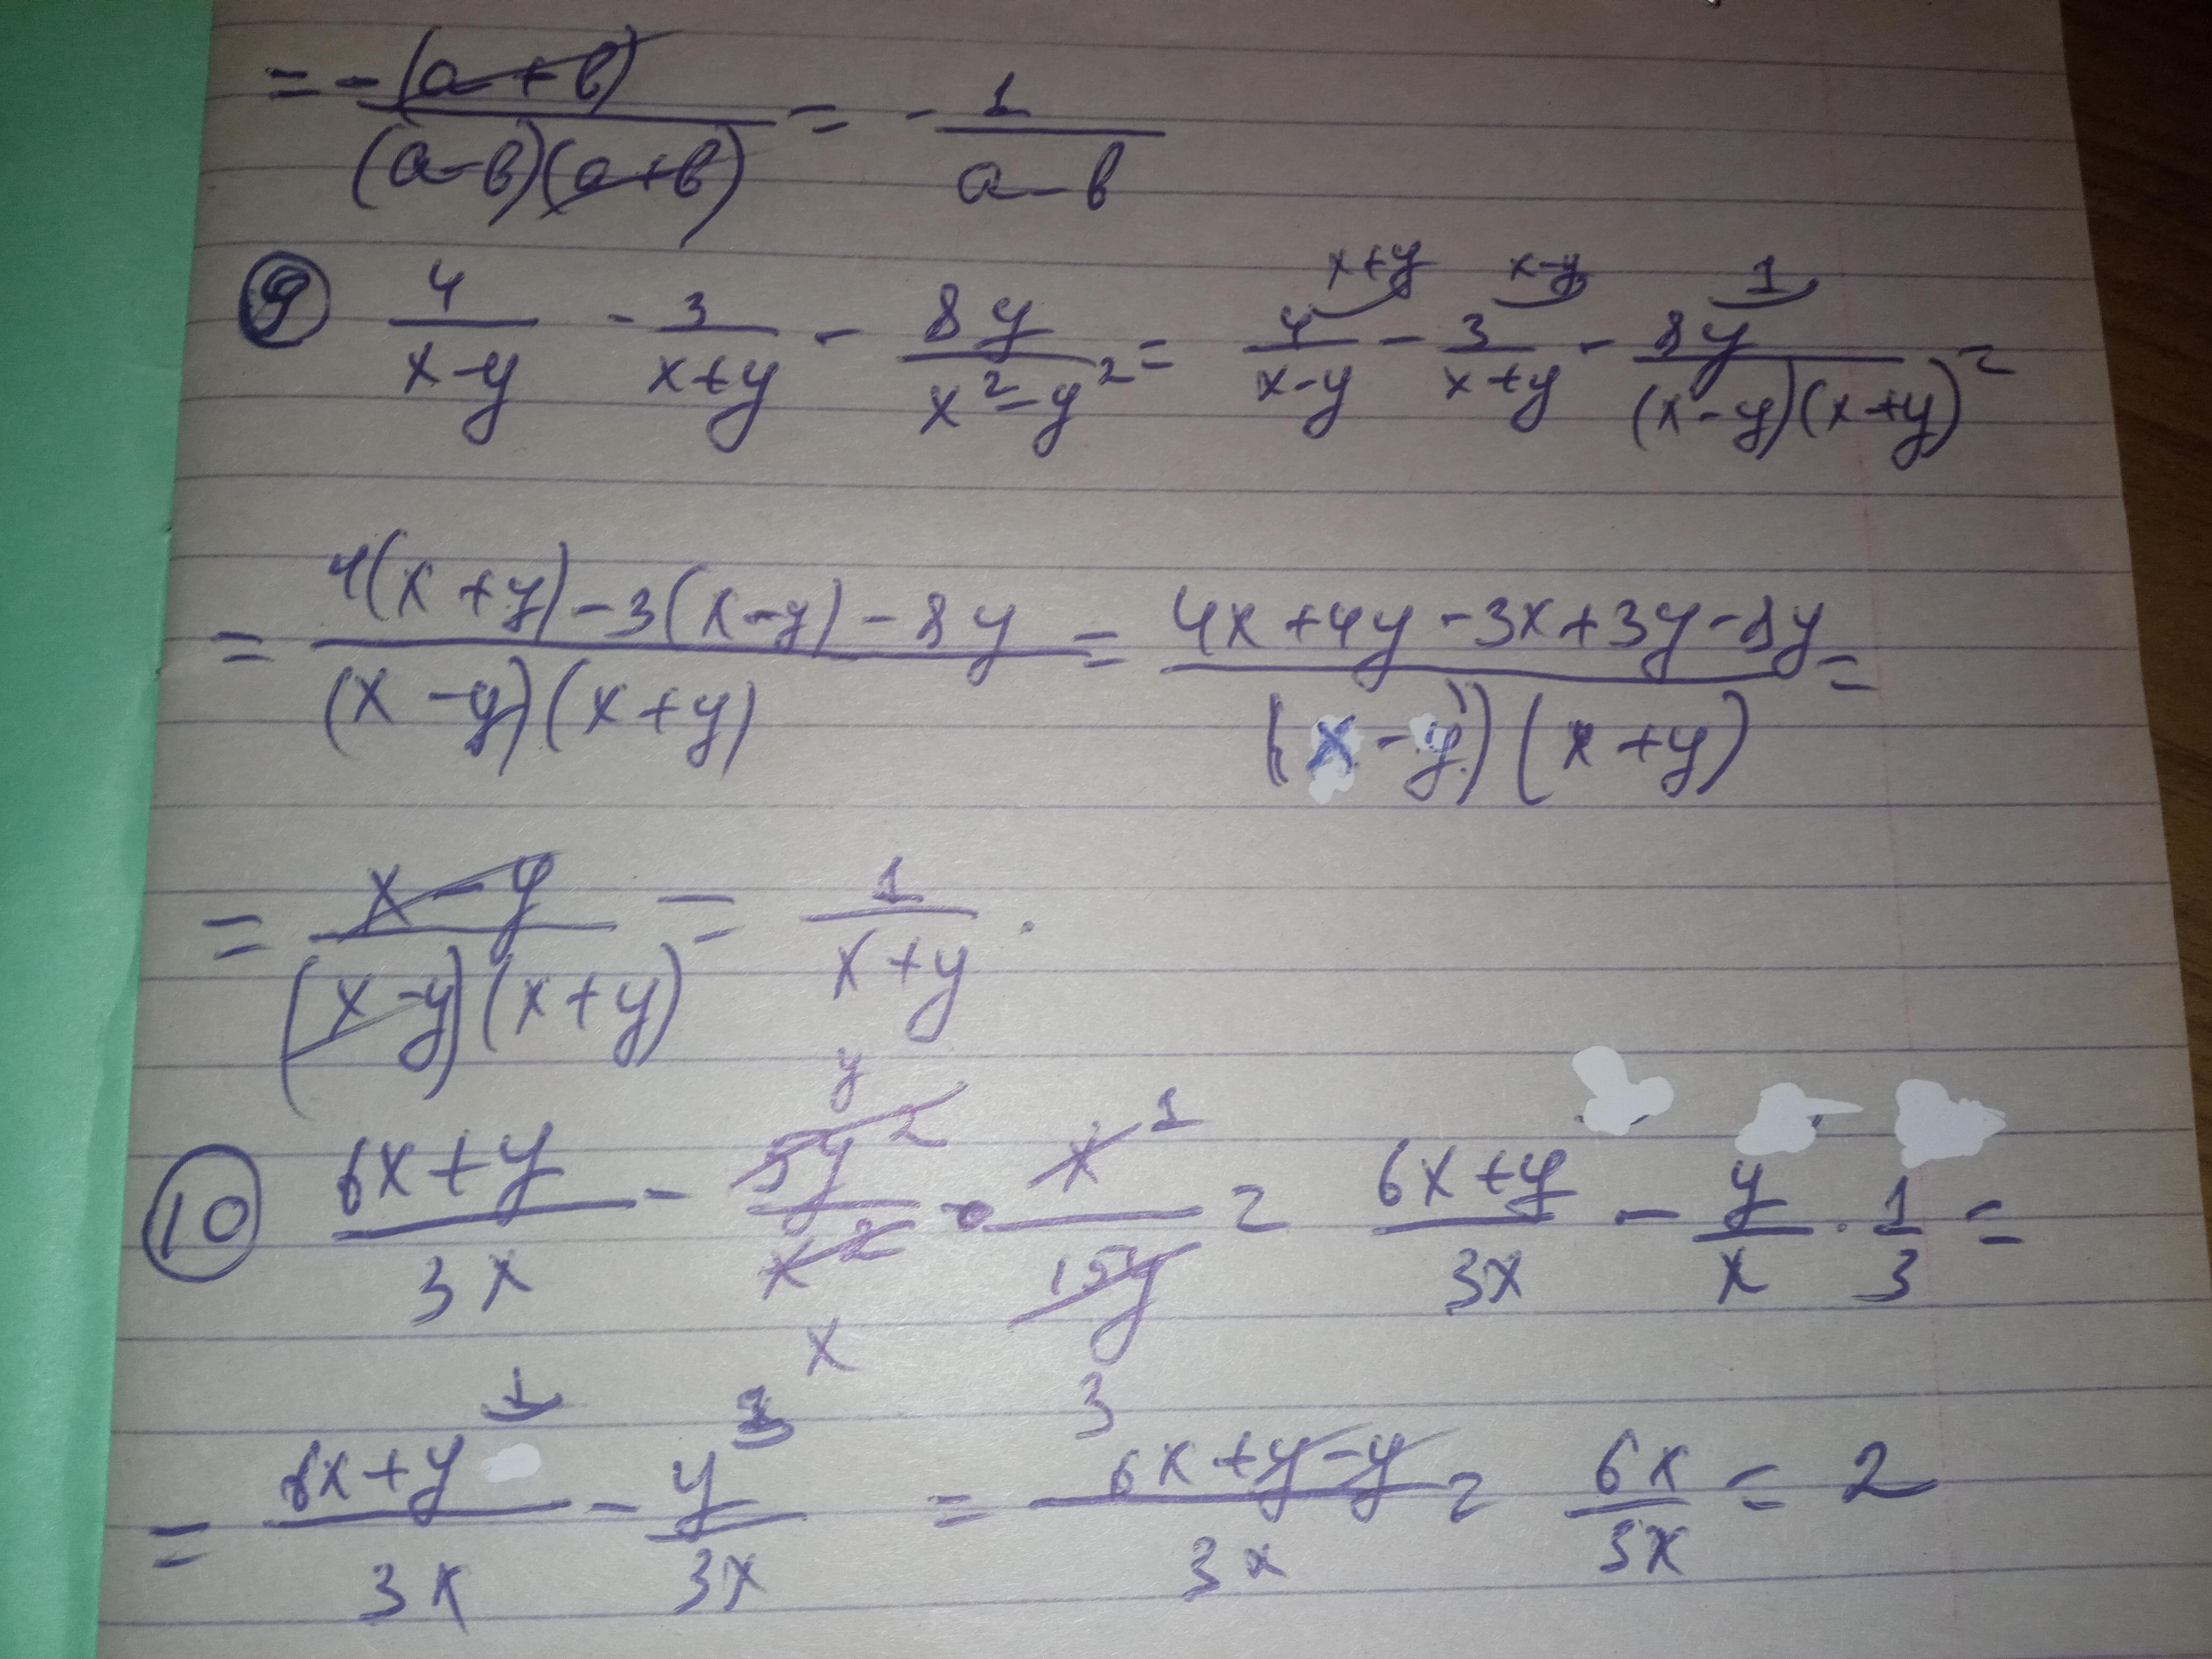 = -(a+b)/((a-b)(a+b)) = - 1/(a-b)
9 4/(x-y) - 3/(x+y) - 8y/(x²-y²) = 4/(x-y) x+y - 3/(x+y) x-y - 8y/((x-y)(x+y)) 1 =
= (4(x+y)-3(x-y)-8y)/((x-y)(x+y)) = (4x+4y-3x+3y-8y)/((x-y)(x+y)) =
= (x-y)/((x-y)(x+y)) = 1/(x+y).
10 (6x+y)/3x - 5y²/x² y x · x/15y 1 3 = (6x+y)/3x - y/x · 1/3 =
= (6x+y)/3x 1 - y/3x = (6x+y-y)/3x = 6x/3x = 2